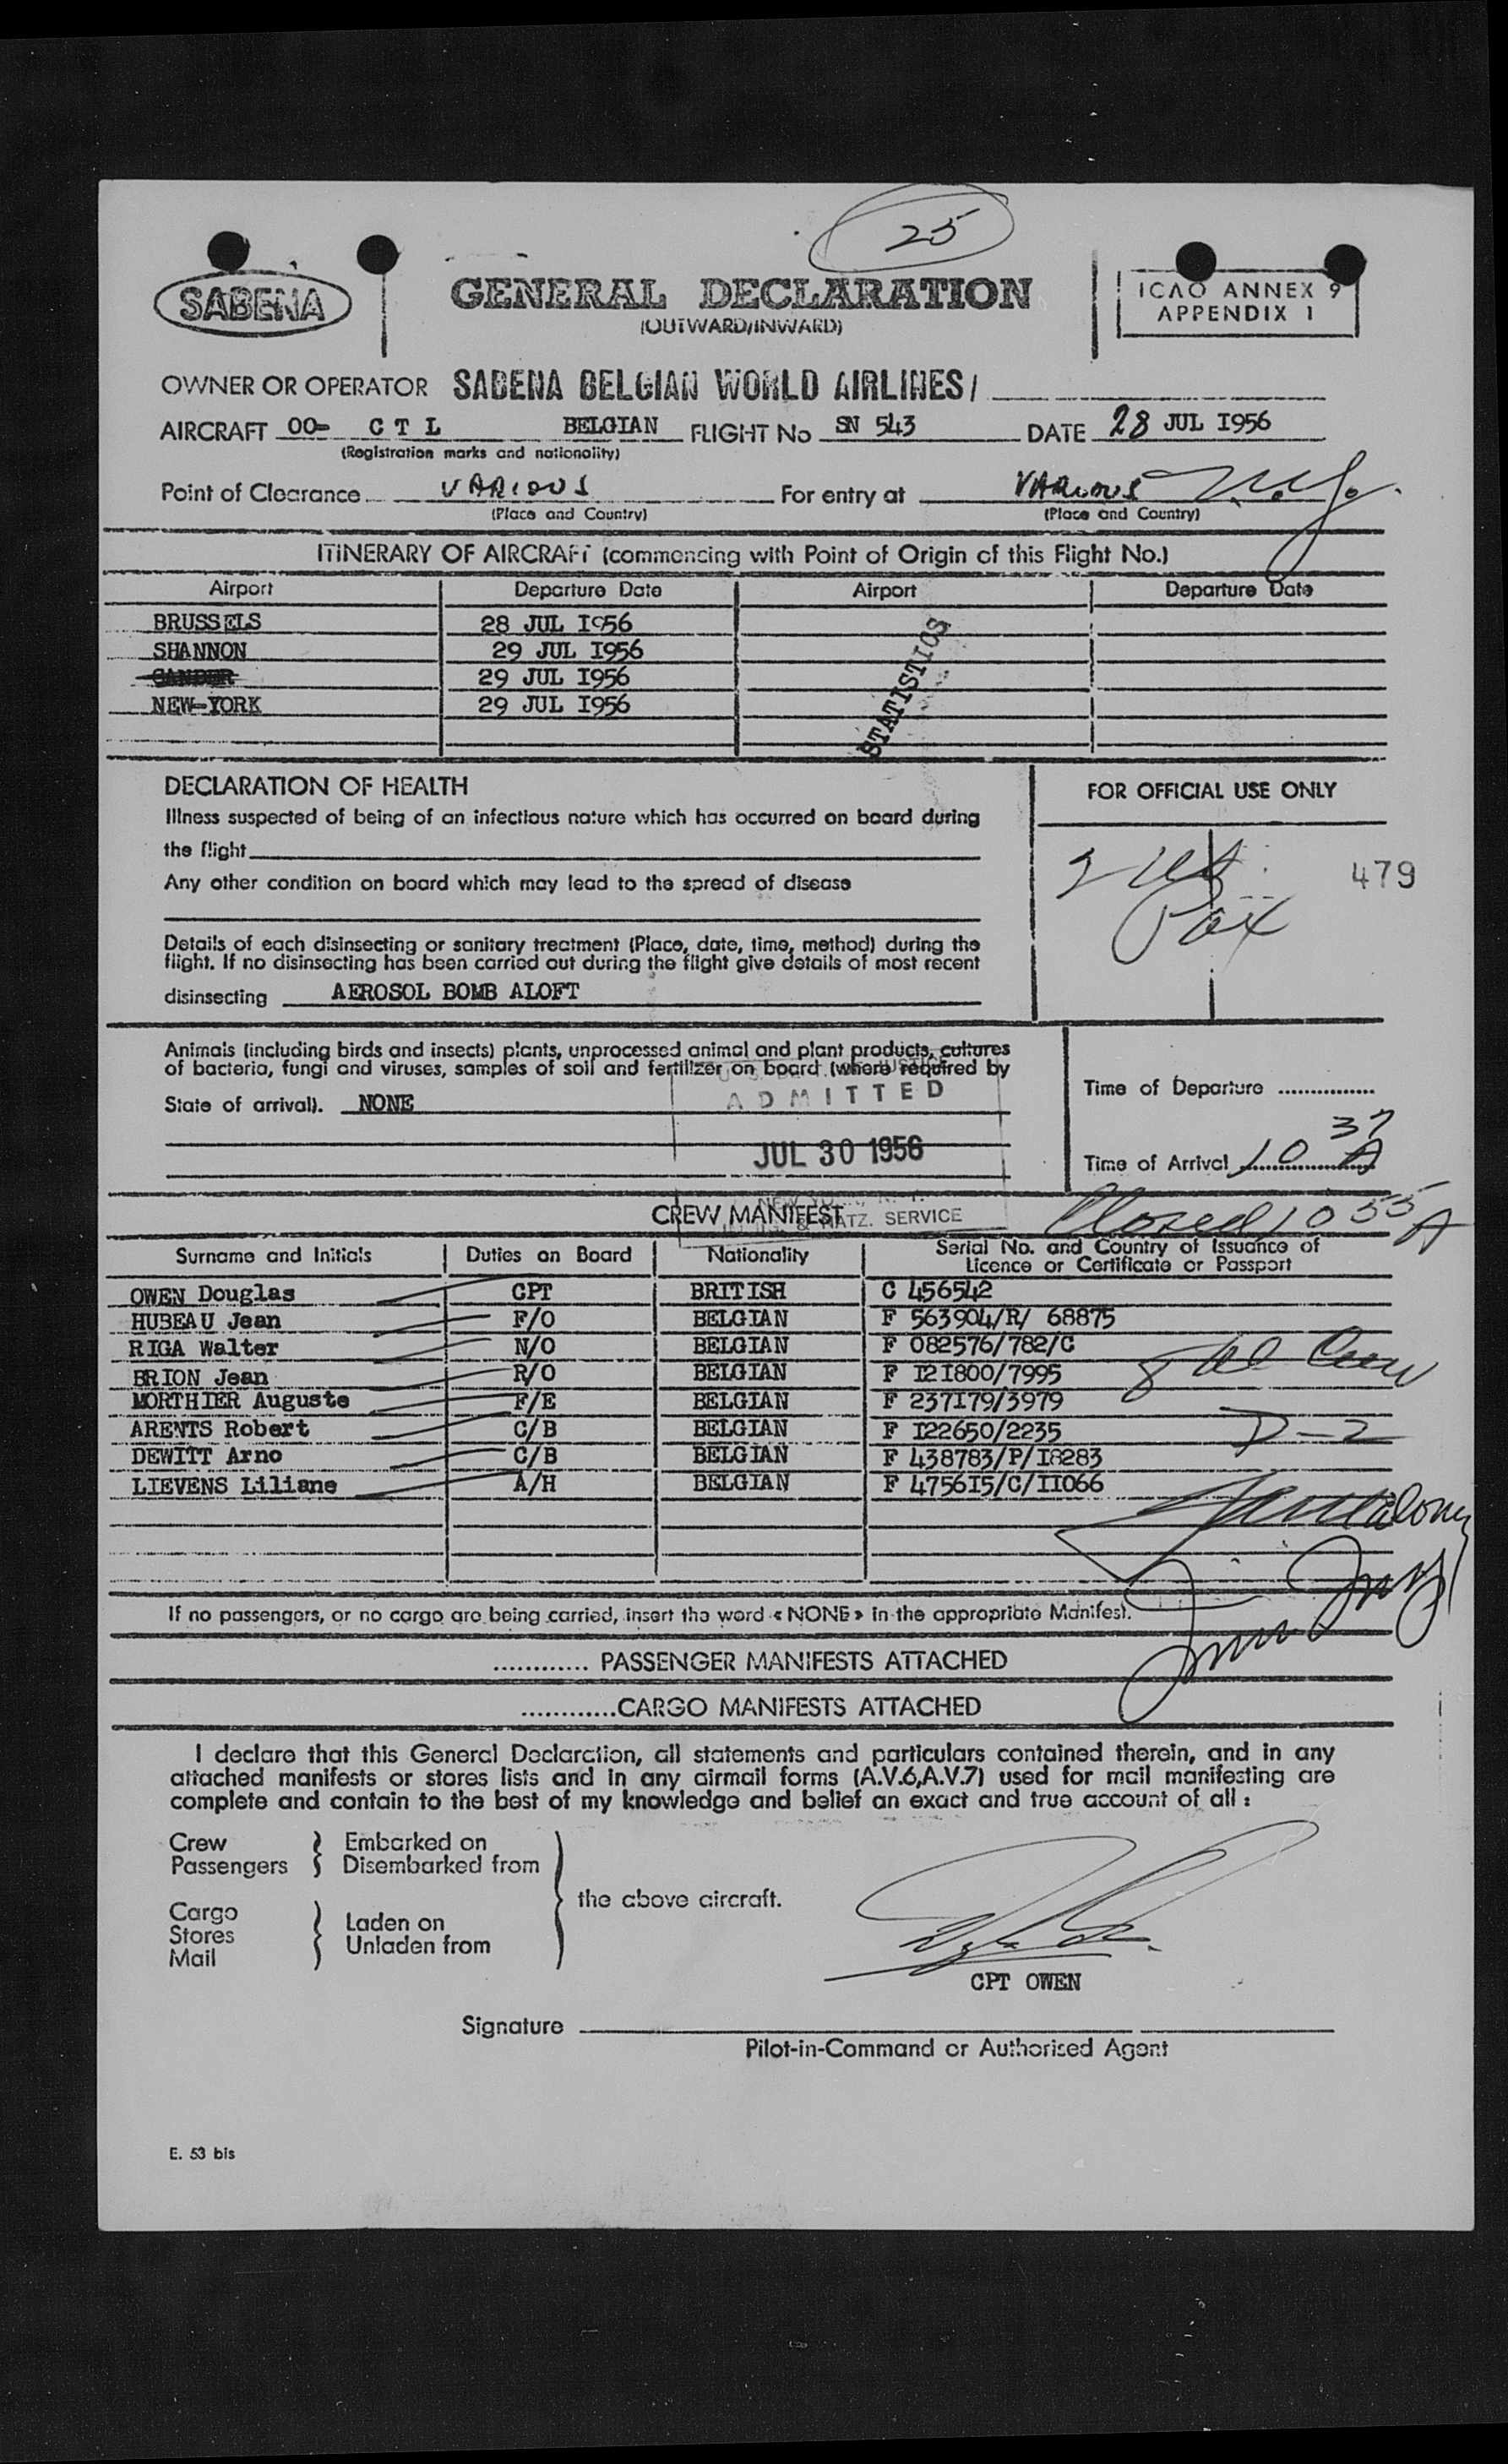 25
SABENA
GENERAL DECLARATION
(OUTWARD/INWARD)
ICAO ANNEX 9
APPENDIX 1
OWNER OR OPERATOR SABENA BELGIAN WORLD AIRLINES/
AIRCRAFT OO- C T L BELGIAN FLIGHT No SN 543 DATE 28 JUL I956
(Registration marks and nationality)
Point of Clearance VARIOUS For entry at VARIOUS N.Y.
(Place and Country) (Place and Country)
ITINERARY OF AIRCRAFT (commencing with Point of Origin of this Flight No.)
Airport Departure Date Airport Departure Date
BRUSSELS 28 JUL I956
SHANNON 29 JUL I956
GANDER 29 JUL I956
NEW-YORK 29 JUL I956
STATISTICS
DECLARATION OF HEALTH
Illness suspected of being of an infectious nature which has occurred on board during
the flight
Any other condition on board which may lead to the spread of disease
Details of each disinsecting or sanitary treatment (Place, date, time, method) during the
flight. If no disinsecting has been carried out during the flight give details of most recent
disinsecting AEROSOL BOMB ALOFT
FOR OFFICIAL USE ONLY
479
Pax
Animals (including birds and insects) plants, unprocessed animal and plant products, cultures
of bacteria, fungi and viruses, samples of soil and fertilizer on board (where required by
State of arrival). NONE
ADMITTED
JUL 30 1956
NATZ. SERVICE
Time of Departure
Time of Arrival 10 37 A
Closed 10 55 A
CREW MANIFEST
Surname and Initials Duties on Board Nationality Serial No. and Country of Issuance of
Licence or Certificate or Passport
OWEN Douglas CPT BRITISH C 456542
HUBEAU Jean F/O BELGIAN F 563904/R/ 68875
RIGA Walter N/O BELGIAN F 082576/782/C
BRION Jean R/O BELGIAN F I2I800/7995
MORTHIER Auguste F/E BELGIAN F 237I79/3979
ARENTS Robert C/B BELGIAN F I22650/2235
DEWITT Arno C/B BELGIAN F 438783/P/I8283
LIEVENS Liliane A/H BELGIAN F 4756I5/C/II066
Crew
D-2
If no passengers, or no cargo are being carried, insert the word « NONE » in the appropriate Manifest.
............ PASSENGER MANIFESTS ATTACHED
............CARGO MANIFESTS ATTACHED
I declare that this General Declaration, all statements and particulars contained therein, and in any
attached manifests or stores lists and in any airmail forms (A.V.6,A.V.7) used for mail manifesting are
complete and contain to the best of my knowledge and belief an exact and true account of all :
Crew
Passengers
Embarked on
Disembarked from
Cargo
Stores
Mail
Laden on
Unladen from
the above aircraft.
CPT OWEN
Signature
Pilot-in-Command or Authorised Agent
E. 53 bis